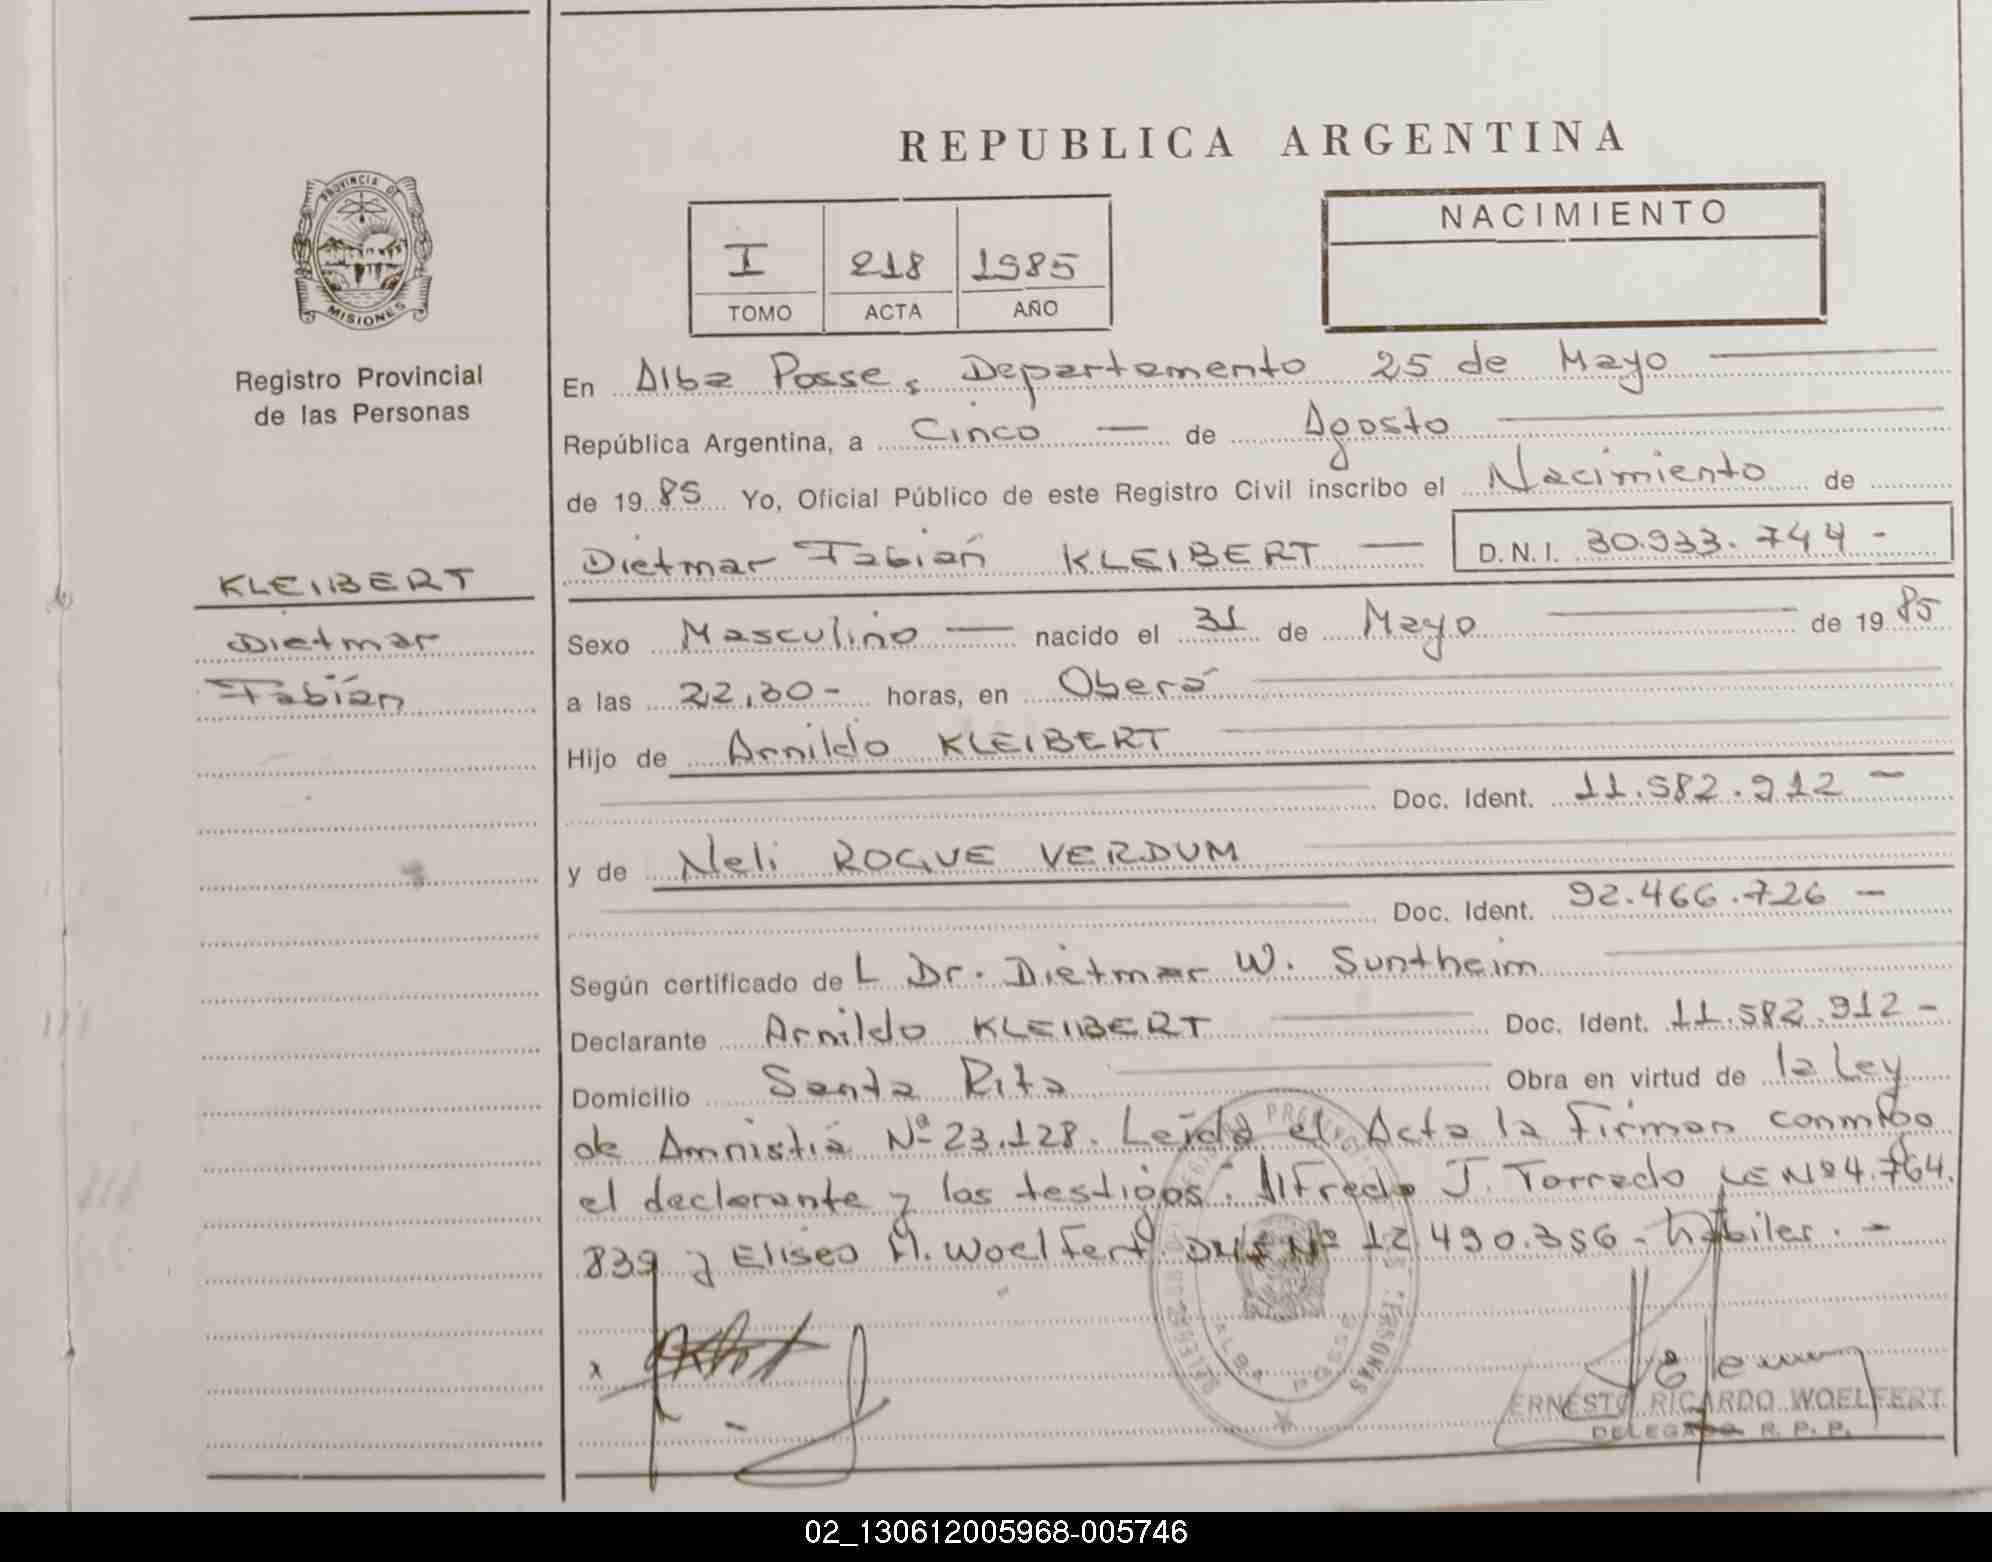 REPUBLICA ARGENTINA
PROVINCIA DE
MISIONES
Registro Provincial
de las Personas
KLEIBERT
Dietmar
Fabián
I 218 1985
TOMO ACTA AÑO
NACIMIENTO
En Alba Posse, Departamento 25 de Mayo
República Argentina, a Cinco — de Agosto
de 1985 Yo, Oficial Público de este Registro Civil inscribo el Nacimiento de
Dietmar Fabián KLEIBERT — D.N.I. 30.933.744 -
Sexo Masculino — nacido el 31 de Mayo de 1985
a las 22,30- horas, en Oberá
Hijo de Arnildo KLEIBERT
Doc. Ident. 11.582.912 —
y de Neli ROQUE VERDUM
Doc. Ident. 92.466.726 —
Según certificado de L Dr. Dietmar W. Suntheim
Declarante Arnildo KLEIBERT Doc. Ident. 11.582.912 -
Domicilio Santa Rita Obra en virtud de la Ley
de Amnistia Nº 23.128. Leida el Acta la Firman conmigo
el declarante y los testigos: Alfredo J. Torredo LE Nº 4.764.
839 y Eliseo A. Woelfert DNI Nº 12.490.356 - hábiles. -
ALBA POSSE
ERNESTO RICARDO WOELFERT
DELEGADO R. P. P.
02_130612005968-005746